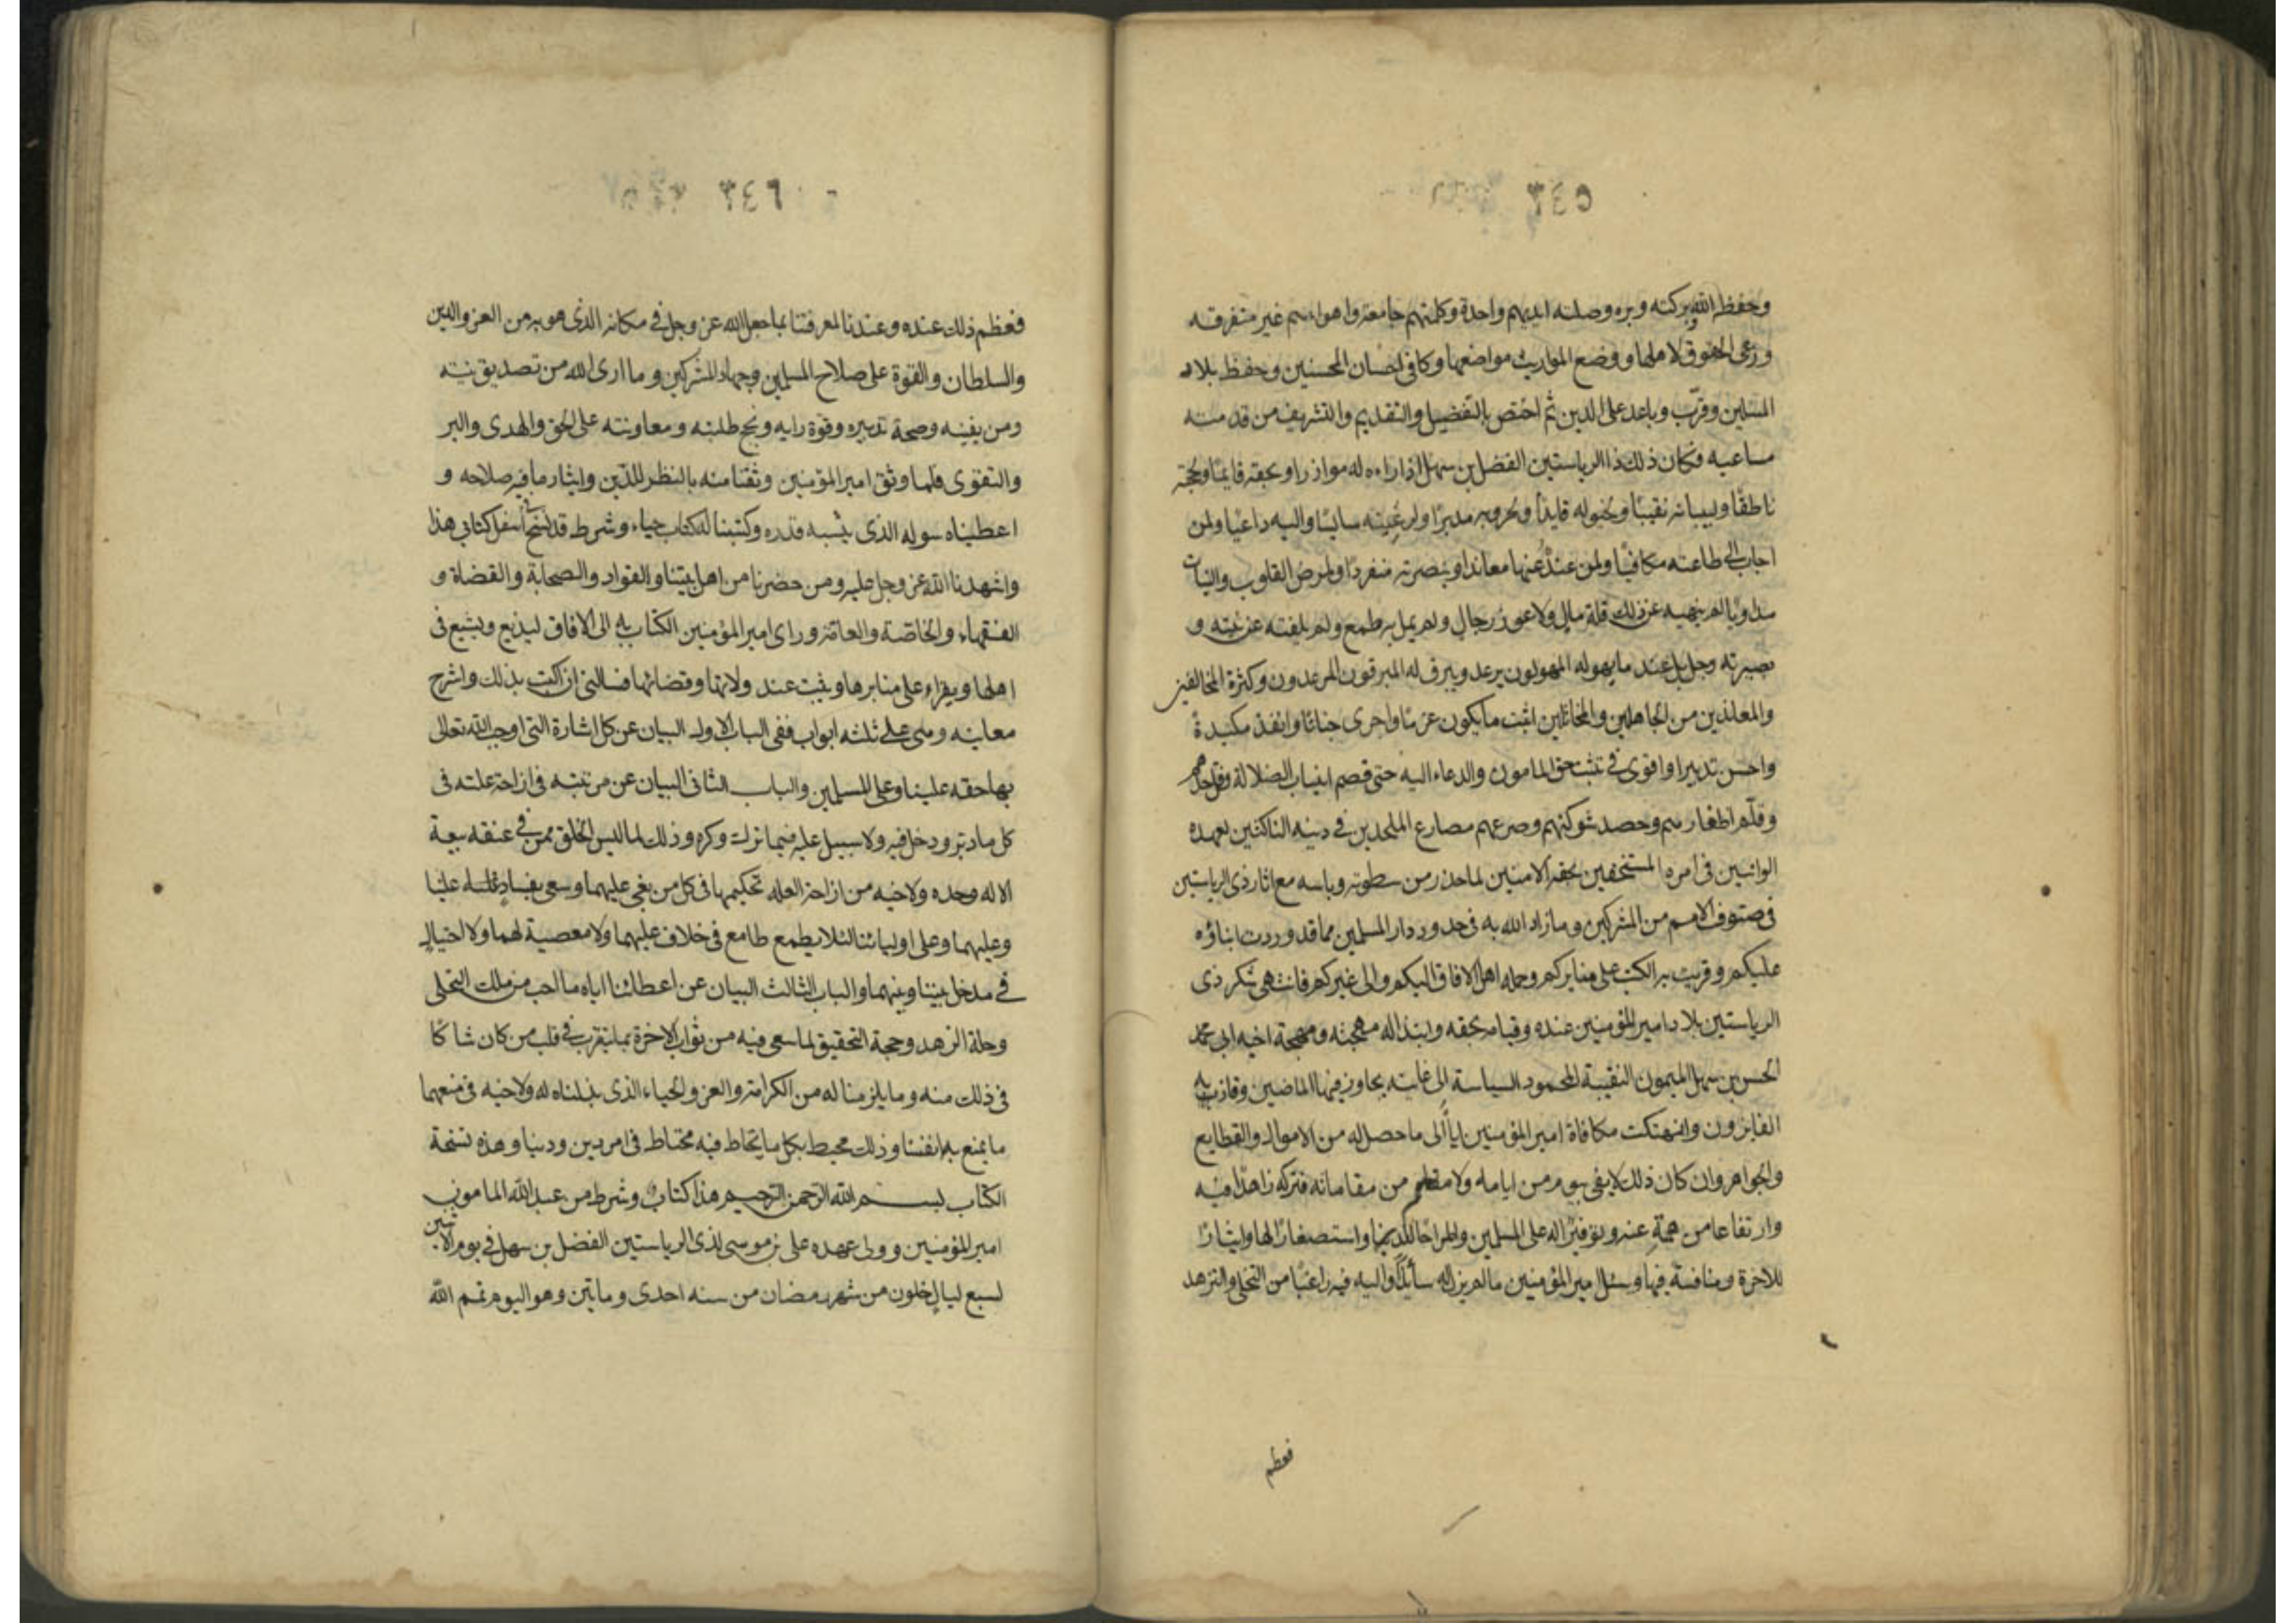 ٣٤٥
وحفظ الله ببركته وبره وصلته ايديهم واحدة وكلمتهم جامعة واهواءهم غير متفرقه
ورعى الحقوق لاهلها ووضع المواريث مواضعها وكافى احسان المحسنين وحفظ بلاد
المسلمين وقرّب وباعد على الدين ثم اختص بالتفضيل والتقديم والتشريف من قدمته
مساعيه فكان ذلك ذا الرياستين الفضل بن سهل اذ اراءه له موازرا وبحقه قايمًا وبحجته
ناطقًا ولبيانه نقيبًا ولخيوله قايدًا ولحروبه مدبرًا ولرعيته سايسًا واليه داعيًا ولمن
اجاب الى طاعته مكافيًا ولمن عند عنها معاندا وبنصرته منفردًا ولمرض القلوب والنيات
مداويًا لم ينهيه عن ذلك قلة مال ولا عوز رجال ولم يمل به طمع ولم يلفته عن نيته و
بصيرته وجل بل عند ما يهوله المهولون يرعد ويبرق له المبرقون المرعدون وكثرة المخالفين
والمعاندين من الجاهلين والمخاتلين اثبت ما يكون عزمًا واجرى جنانًا وانفذ مكيدةً
واحسن تدبيرا واقوى في تثبت حق المامون والدعاء اليه حتى قصم انياب الضلالة وفل حدهم
وقلّم اظفارهم وحصد شوكتهم وصرعهم مصارع الملحدين في دينه الناكثين لعهده
الوانيين في امره المستخفين بحقه الامنين لما حذر من سطوته وباسه مع اثار ذى الرياستين
في صنوف الامم من المشركين وما زاد الله به في حدود دار المسلمين مما قد وردت ابناؤه
عليكم وقريت به الكتب على منابركم وحمله اهل الافاق اليكم والى غيركم فانتهى شكر ذى
الرياستين بلاد امير المؤمنين عنده وقيامه بحقه وابتذاله مهجته ومهجة اخيه ابى محمد
الحسن بن سهل الميمون النقيبة المحمود السياسة الى غايته تجاوز فيها الماضين وفاز به
الفايزون وانتهت مكافاة امير المؤمنين اياه الى ما حصل له من الاموال والقطايع
والجواهر وان كان ذلك لا يفى بيوم من ايامه ولا مقام من مقاماته فتركه زاهدًا فيه
وارتفاعا من همةٍ عنه وتوفيرًا له على المسلمين واطراحًا للدنيا واستصغارًا لها وايثارًا
للآخرة ومنافسة فيها وسئل امير المؤمنين مالم يزل له سائلًا واليه فيه راغبًا من التخلى والتزهد
فعظم
٣٤٦
فعظم ذلك عنده وعندنا لمعرفتنا بما جعل الله عز وجل في مكانه الذى هو به من العز والدين
والسلطان والقوة على صلاح المسلمين وجهاد المشركين وما ارى الله من تصديق نيته
ومن يقينه وصحة تدبيره وقوة رايه ونجح طلبته ومعاونته على الحق والهدى والبر
والتقوى فلما وثق امير المؤمنين وثقنا منه بالنظر للدّين وايثار ما فيه صلاحه و
اعطيناه سوله الذى يشبه قدره وكتبنا له كتاب حياء وشرط قد نسخ اسفل كتابي هذا
واشهدنا الله عز وجل عليه ومن حضرنا من اهل بيتنا والقواد والصحابة والقضاة و
الفقهاء والخاصة والعامّة وراى امير المؤمنين الكتاب به الى الافاق ليذيع ويشيع في
اهلها ويقراء على منابرها ويثبت عند ولاتها وقضاتها فسالنى ان اكتب بذلك واشرح
معانيه وهى على ثلثه ابواب ففى الباب الاول البيان عن كل اشارة التى اوجب الله تعالى
بها حقه علينا وعلى المسلمين والباب الثاني البيان عن مرتبته في ازاحة علته في
كل ما دبّر ودخل فيه ولا سبيل عليه فيما ترك وكره وذلك لما ليس الخلق ممن في عنقه بيعة
الا له وحده ولاخيه من ازاحة العله تحكيمها في كل من بغى عليهما وسعى بفسادٍ علينا
وعليهما وعلى اوليائنا لئلا يطمع طامع في خلاف عليهما ولا معصية لهما ولا احتيال
في مدخل بيننا وبينهما والباب الثالث البيان عن اعطائنا اياه ما احب من ملك التحلى
وحلة الزهد وحجة التحقيق لما سعى فيه من ثواب الاخرة بما يتقرب في قلب من كان شاكا
في ذلك منه وما يلزمنا له من الكرامة والعز والحياء الذى بذلناه له ولاخيه في منعهما
ما يمنع به انفسنا وذلك محيط بكل ما يحتاط فيه محتاط في امر دين ودنيا وهذه نسخة
الكتاب بسم الله الرّحمن الرّحيم هذا كتاب وشرط من عبد الله المامون
امير المؤمنين وولى عهده على بن موسى لذى الرياستين الفضل بن سهل في يوم الاثنين
لسبع ليالٍ خلون من شهر رمضان من سنه احدى وماتين وهو اليوم تمم الله